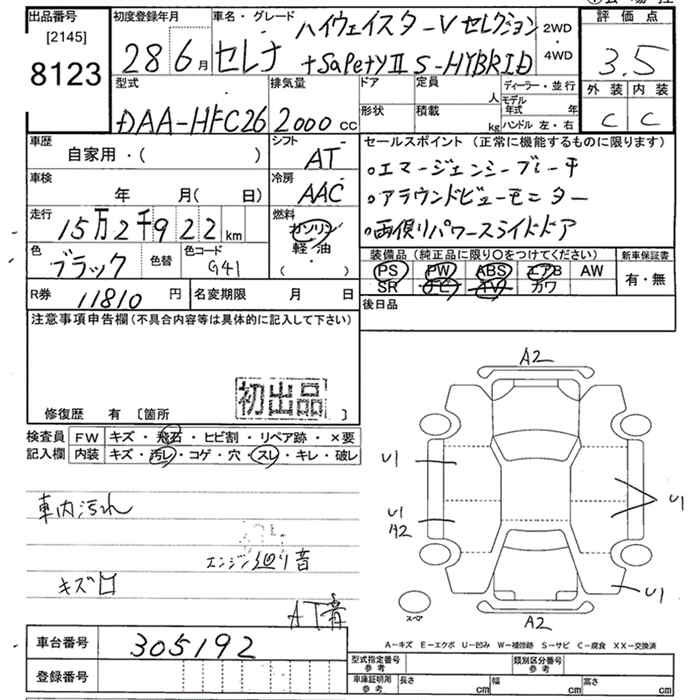 出品番号
[2145]
8123
初度登録年月
28 6月
車名・グレード
セレナ
ハイウェイスターV セレクション
+SaFetyⅡ S-HYBRID
2WD
・
4WD
評価点
3.5
外装 内装
C C
型式
DAA-HFC26
排気量
2000 cc
ドア
形状
定員
人
積載
kg
ディーラー・並行
モデル年式 年
ハンドル 左・右
車歴
自家用・( )
シフト
AT
車検
年 月( 日)
冷房
AAC
走行
15万2千922 km
燃料
ガソリン
軽・油
( )
色
ブラック
色替
色コード
G41
R券
11810 円
名変期限 月 日
セールスポイント (正常に機能するものに限ります)
・エマージェンシーブレーキ
・アラウンドビューモニター
・両側パワースライドドア
装備品(純正品に限り〇をつけてください)
新車保証書
PS PW ABS エアB AW
SR ナビ TV カワ
有・無
後日品
注意事項申告欄(不具合内容等は具体的に記入して下さい)
初出品
修復歴 有 [箇所 ]
検査員
記入欄
FW キズ・飛石・ヒビ割・リペア跡・×要
内装 キズ・汚レ・コゲ・穴・スレ・キレ・破レ
車内汚れ
エンジン廻り音
キズ凹
AT音
A2
U1
U1
A2
U1
U1
A2
スペア
A-キズ E-エクボ U-凹み W-補修跡 S-サビ C-腐食 XX-交換済
車台番号 305192
登録番号
型式指定番号
参考
類別区分番号
参考
車庫証明用
参考
長さ cm 幅 cm 高さ cm